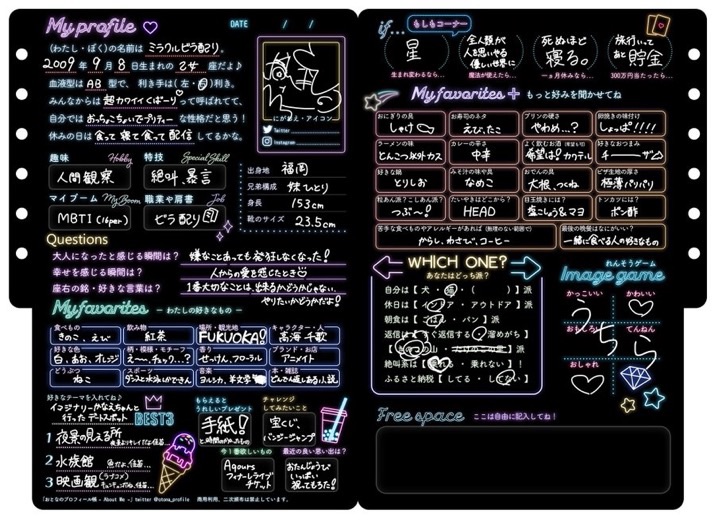 My profile ♡
DATE / /
(わたし・ぼく)の名前は ミラクルビラ配り 。
2009 年 9 月 8 日生まれの 乙女 座だよ♪
血液型は AB 型で、 利き手は(左・右)利き。
みんなからは 超カワイイくばーり って呼ばれてて、
自分では おっちょこちょいでプリティー な性格だと思う!
休みの日は 食って寝て食って配信 してるかな。
にがおえ・アイコン
Twitter
Instagram
趣味 Hobby
人間観察
特技 Special Skill
絶叫、暴言
マイブーム My Boom
MBTI(16per.)
職業や肩書 Job
ビラ配り
出身地 福岡
兄弟構成 妹ひとり
身長 153cm
靴のサイズ 23.5cm
Questions
大人になったと感じる瞬間は? 嫌なことあっても発狂しなくなった!
幸せを感じる瞬間は? 人からの愛を感じたとき
座右の銘・好きな言葉は? 1番大切なことは、出来るかどうかじゃない、
やりたいかどうかだよ!
My favorites ― わたしの好きなもの ―
食べもの
きのこ、えび
飲み物
紅茶
場所・観光地
FUKUOKA!
キャラクター・人
高海千歌
好きな色
白、あお、オレンジ
柄・模様・モチーフ
え〜、チェック...?
香り
せっけん、フローラル
ブランド・お店
アニメイト
どうぶつ
ねこ
スポーツ
音楽
本・雑誌
どんでん返しある小説
好きなテーマを入れてね♪
イマジナリーかなえちゃんと
行ったデートスポット BEST3
1 夜景の見える所
2 水族館
3 映画観
もらえると
うれしいプレゼント
手紙!
チャレンジ
してみたいこと
宝くじ、
バンジージャンプ
今1番欲しいもの
Aqours
フィナーレライブ
チケット
最近の良い思い出は?
おたんじょうび
いっぱい
祝ってもろた!
「おとなのプロフィール帳 - About Me -」twitter @otona_profile 商用利用、二次頒布は禁止しています。
if... もしもコーナー
星
生まれ変わるなら...
全人類が
人を思いやる
優しい世界に
魔法が使えたら...
死ぬほど
寝る。
一ヵ月休みなら...
旅行いって
あと貯金
300万円当たったら...
My favorites + もっと好みを聞かせてね
おにぎりの具
しゃけ
お寿司のネタ
えび、たこ
プリンの硬さ
やわめ...?
卵焼きの味付け
しょっぱ!!!!
ラーメンの味
とんこつ以外カス
カレーの辛さ
中辛
よく飲むお酒(希望も可)
希望は?カクテル
好きなおつまみ
チ――ザ
好きな鍋
とりしお
みそ汁の味や具
なめこ
おでんの具
大根、つくね
ピザ生地の厚さ
極薄パリパリ
粒あん派?こしあん派?
つぶ〜!
たいやきはどこから?
HEAD
目玉焼きには?
塩こしょう&マヨ
トンカツには?
ポン酢
苦手な食べものやアレルギーがあれば(無理のない範囲で)
からし、わさび、コーヒー
最後の晩餐はなにがいい?
一緒に食べる人の好きなもの
WHICH ONE?
あなたはどっち派?
自分は【 犬 ・ 猫 ・ ( ) 】派
休日は【 インドア ・ アウトドア 】派
朝食は【 ごはん ・ パン 】派
返信は【 すぐ返信する ・ 溜めがち 】
絶叫系は【 乗れる ・ 乗れない 】!
ふるさと納税【 してる ・ してない 】
れんそうゲーム
Image game
かっこいい
かわいい
おもしろい
てんねん
おしゃれ
うちら
Free space ここは自由に記入してね!